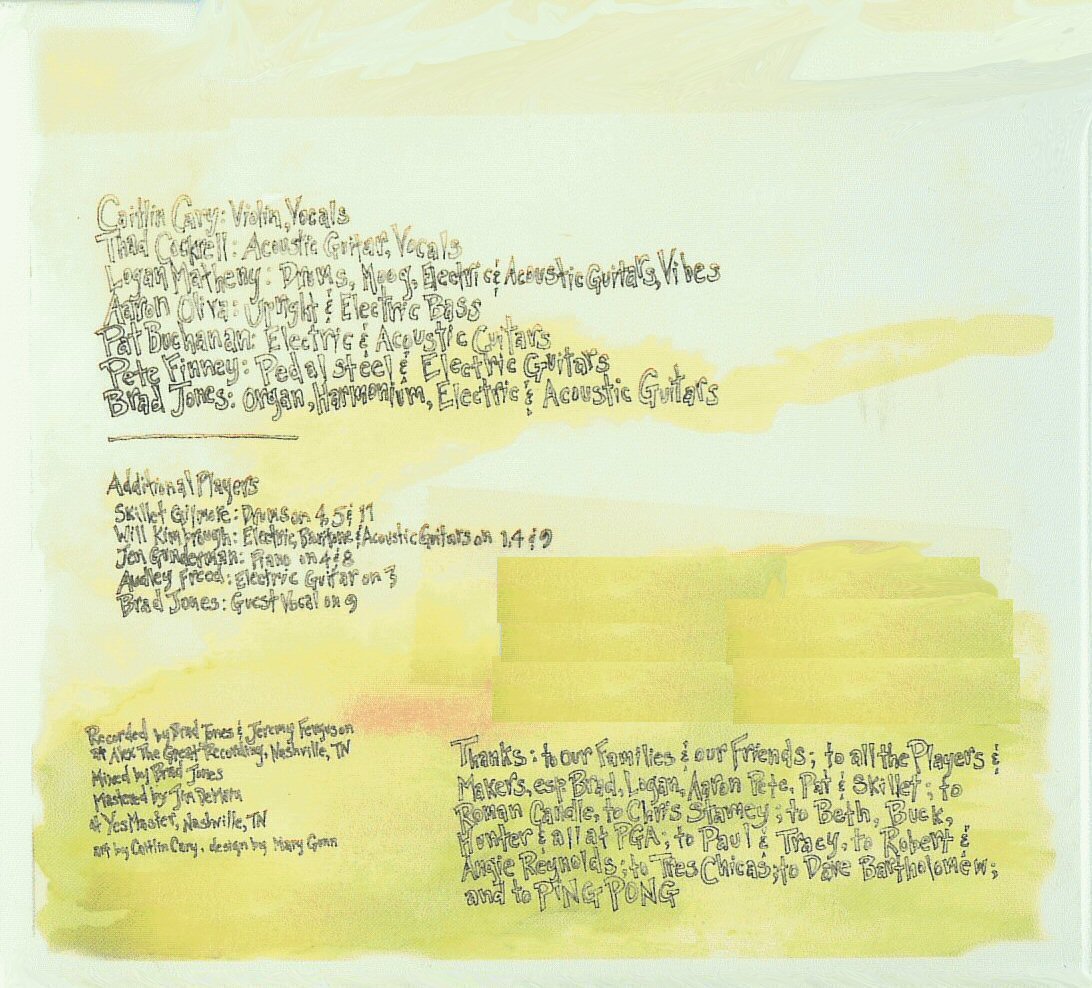 Caitlin Cary: Violin, Vocals
Thad Cockrell: Acoustic Guitar, Vocals
Logan Matheny: Drums, Moog, Electric & Acoustic Guitars, Vibes
Aaron Oliva: Upright & Electric Bass
Pat Buchanan: Electric & Acoustic Guitars
Pete Finney: Pedal steel & Electric Guitars
Brad Jones: Organ, Harmonium, Electric & Acoustic Guitars
Additional Players
Skillet Gilmore: Drums on 4, 5 & 11
Will Kimbrough: Electric, Baritone & Acoustic Guitars on 1, 4 & 9
Jen Gunderman: Piano on 4 & 8
Audley Freed: Electric Guitar on 3
Brad Jones: Guest Vocal on 9
Recorded by Brad Jones & Jeremy Ferguson
at Alex The Great Recording, Nashville, TN
Mixed by Brad Jones
Mastered by Jim DeMain
at Yes Master, Nashville, TN
art by Caitlin Cary, design by Mary Gunn
Thanks: to our Families & our Friends; to all the Players &
Makers, esp Brad, Logan, Aaron Pete, Pat & Skillet; to
Roman Candle, to Chris Stamey; to Beth, Buck,
Hunter & all at PGA; to Paul & Tracy, to Robert &
Angie Reynolds; to Tres Chicas; to Dave Bartholomew;
and to PING PONG